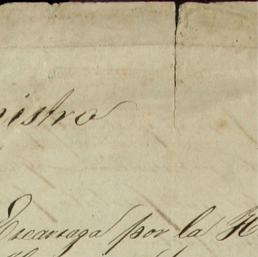 nistro
Escarzaga por la H